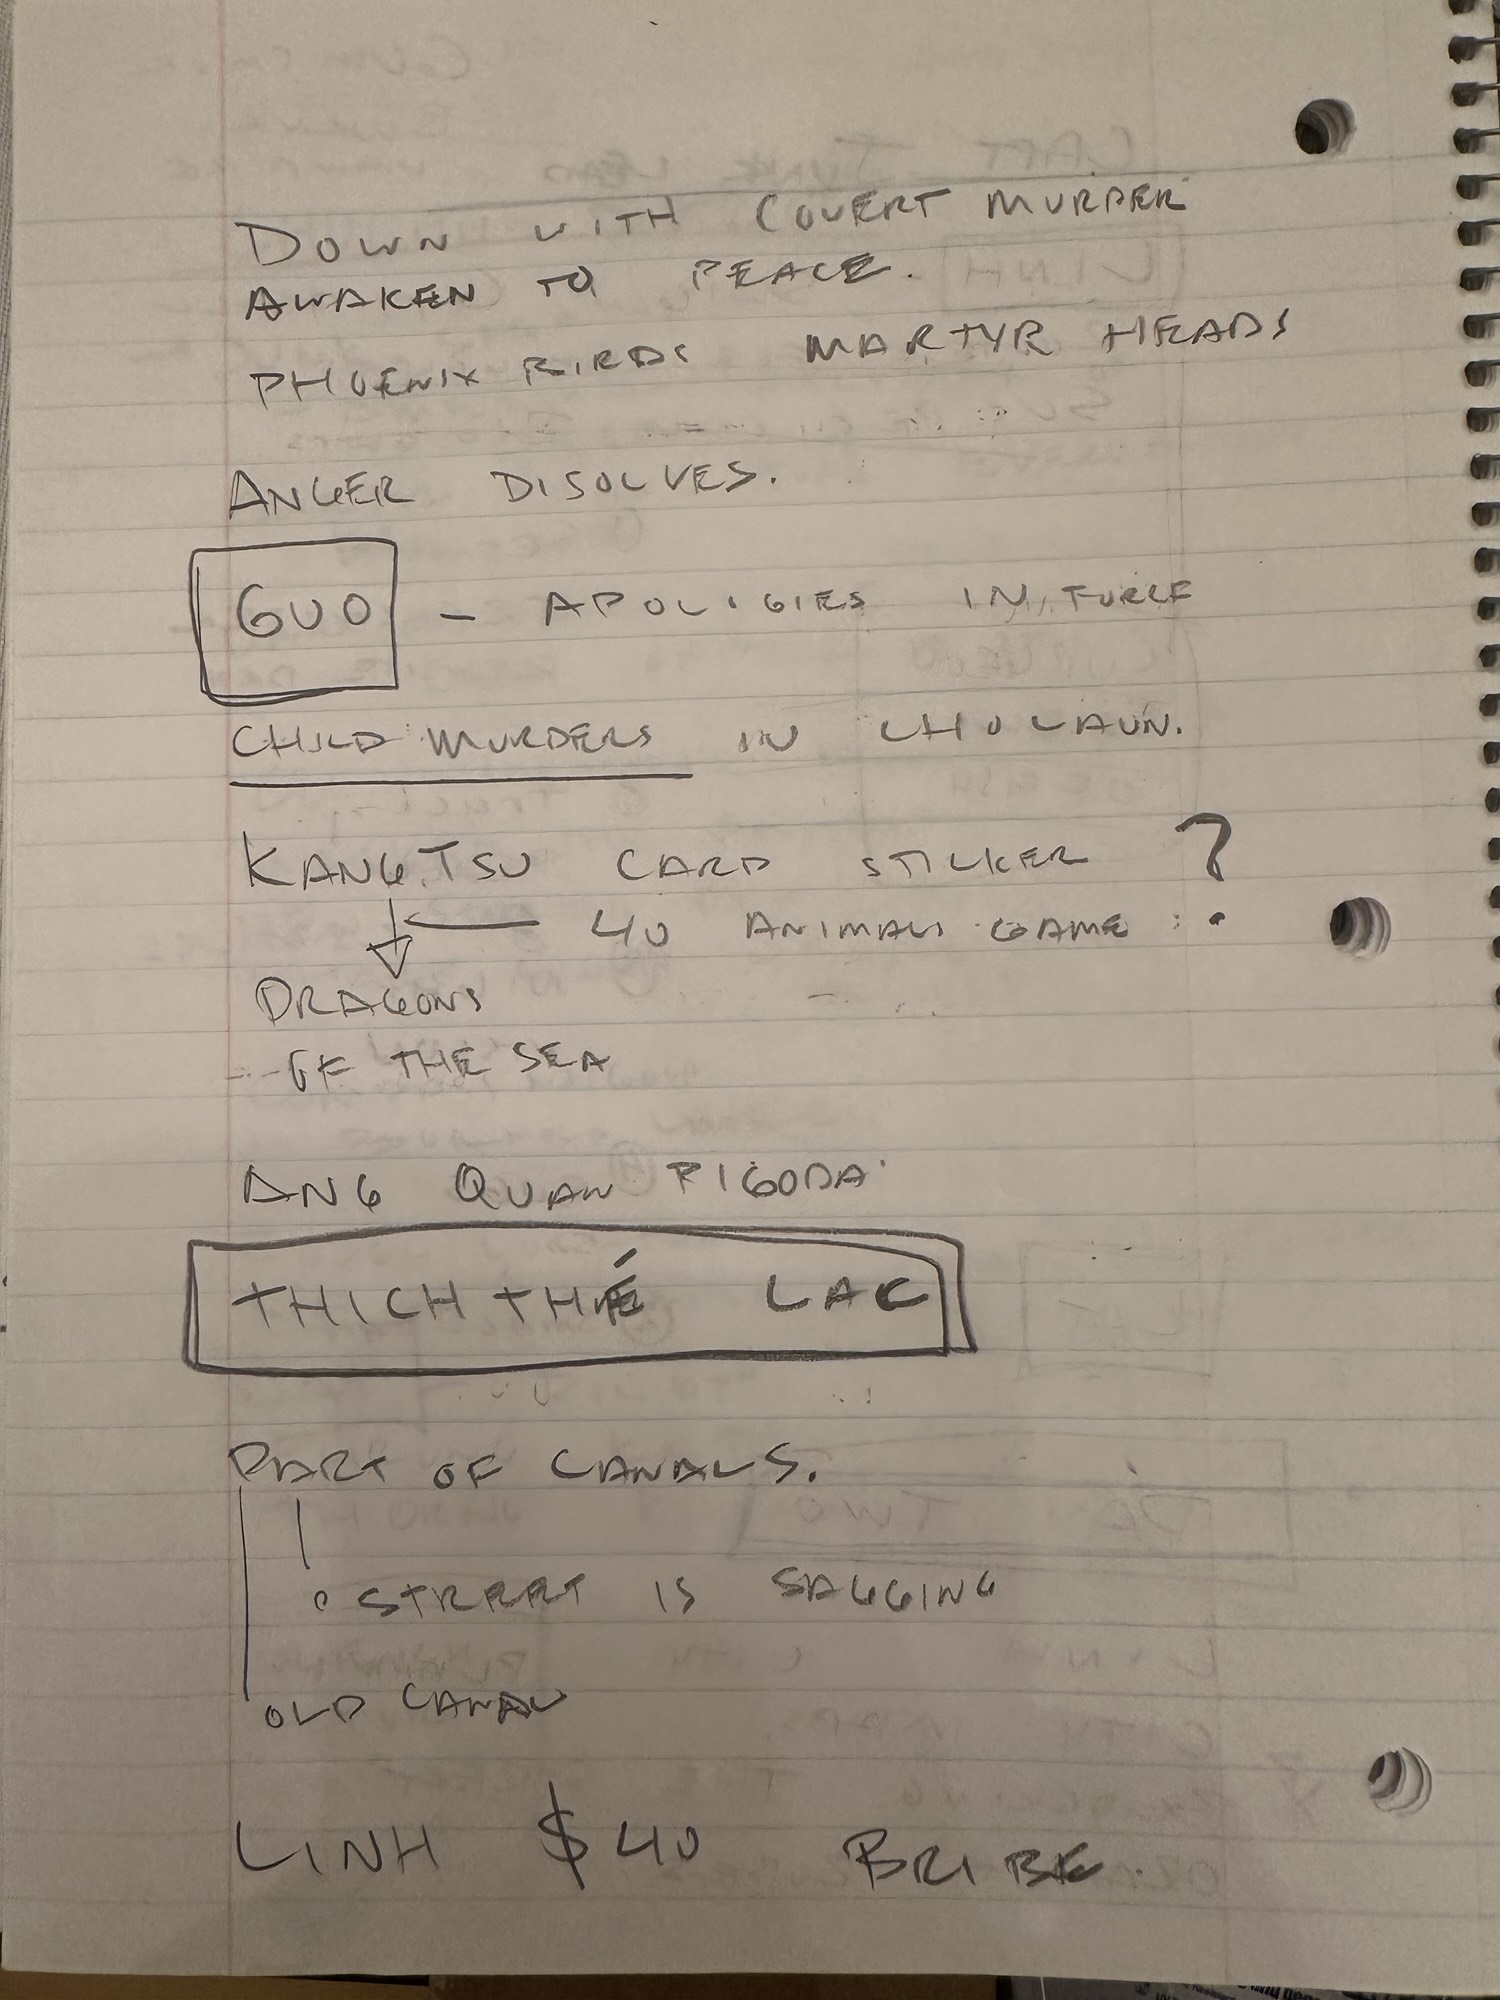 DOWN WITH COVERT MURDER
AWAKEN TO PEACE.
PHOENIX BIRDS MARTYR HEADS
ANGER DISOLVES.
GUO - APOLIGIES IN TURCE
CHILD MURDERS IN CHOLAUN.
KANG TSU CARD STICKER ?
40 ANIMALS GAME
DRAGONS
OF THE SEA
ANG QUAN PIGODA
THICH THÉ LAC
PART OF CANALS.
STREET IS SAGGING
OLD CANAL
LINH $40 BRIBE